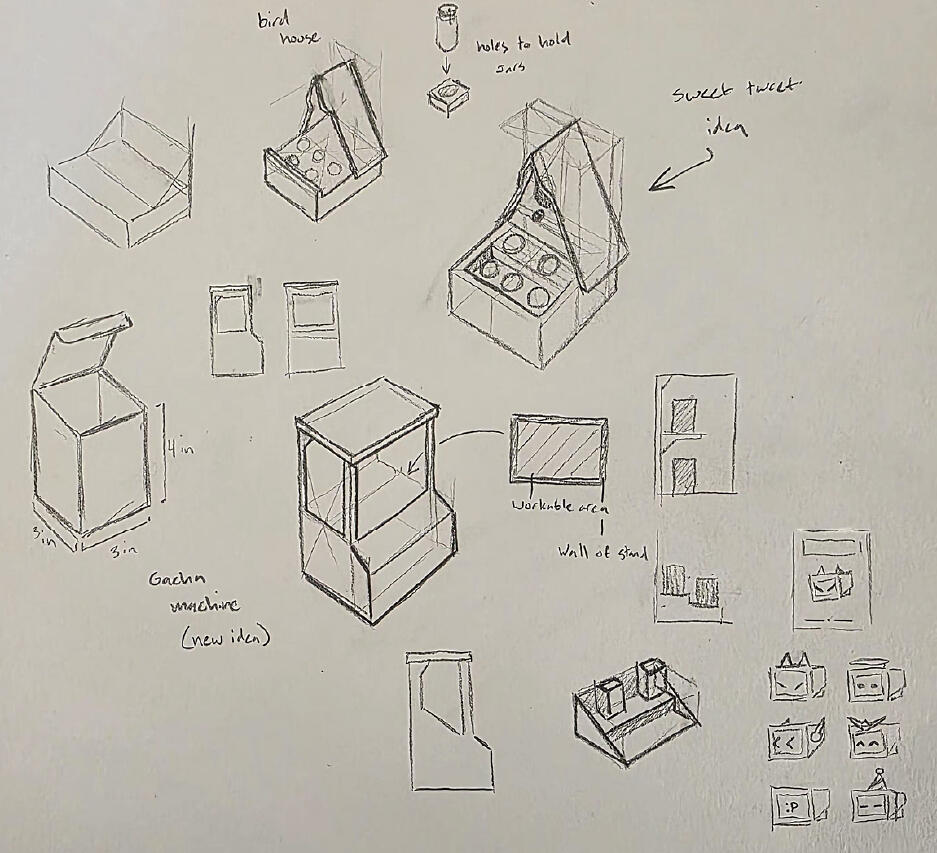 bird
house
holes to hold
Jars
sweet tweet
idea
4 in
3 in
3 in
Workable area
Wall of stand
Gacha
machine
(new idea)
:P